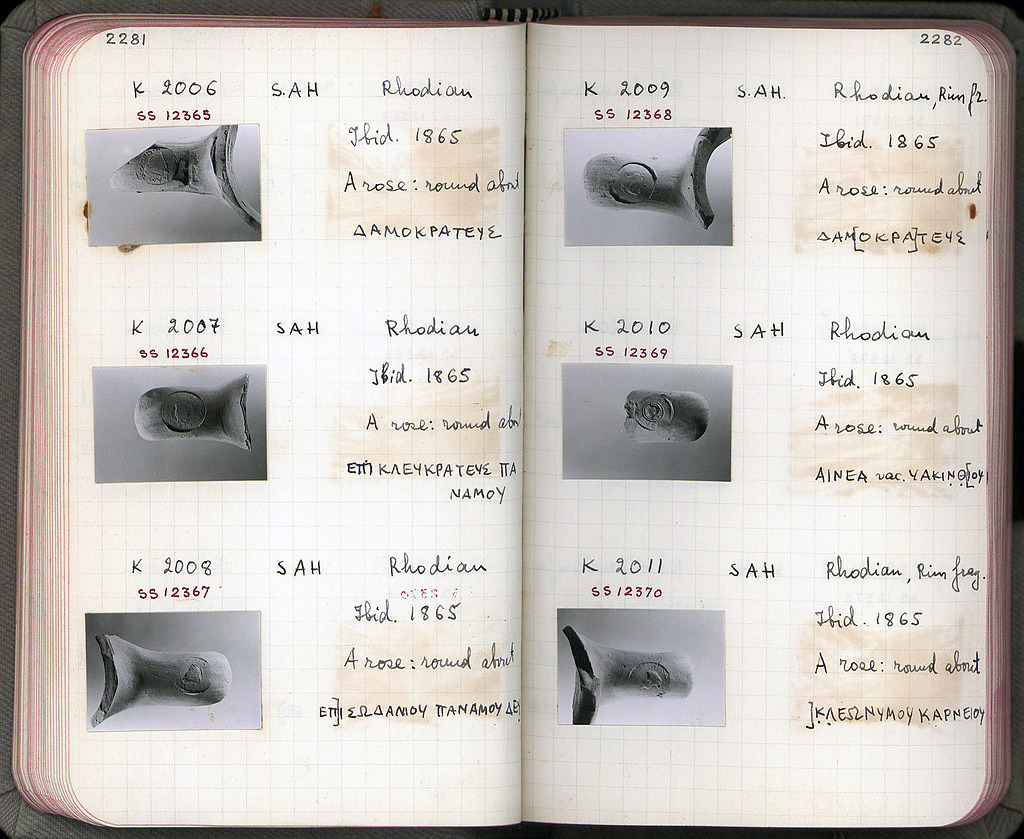 2281
K 2006 SAH Rhodian
SS 12365
Ibid. 1865
A rose: round about
ΔΑΜΟΚΡΑΤΕΥΣ
K 2007 SAH Rhodian
SS 12366
Ibid. 1865
A rose: round about
ΕΠΙ ΚΛΕΥΚΡΑΤΕΥΣ ΠΑ
ΝΑΜΟΥ
K 2008 SAH Rhodian
SS 12367
Ibid. 1865
A rose: round about
ΕΠ]Ι ΣΩΔΑΜΟΥ ΠΑΝΑΜΟΥ ΔΕΥ
2282
K 2009 S.AH. Rhodian, Rim fr.
SS 12368
Ibid. 1865
A rose: round about
ΔΑΜ[ΟΚΡΑ]ΤΕΥΣ
K 2010 SAH Rhodian
SS 12369
Ibid. 1865
A rose: round about
ΑΙΝΕΑ vac. ΥΑΚΙΝΘ[ΟΥ
K 2011 SAH Rhodian, Rim frag.
SS 12370
Ibid. 1865
A rose: round about
]ΚΛΕΩΝΥΜΟΥ ΚΑΡΝΕΙΟΥ